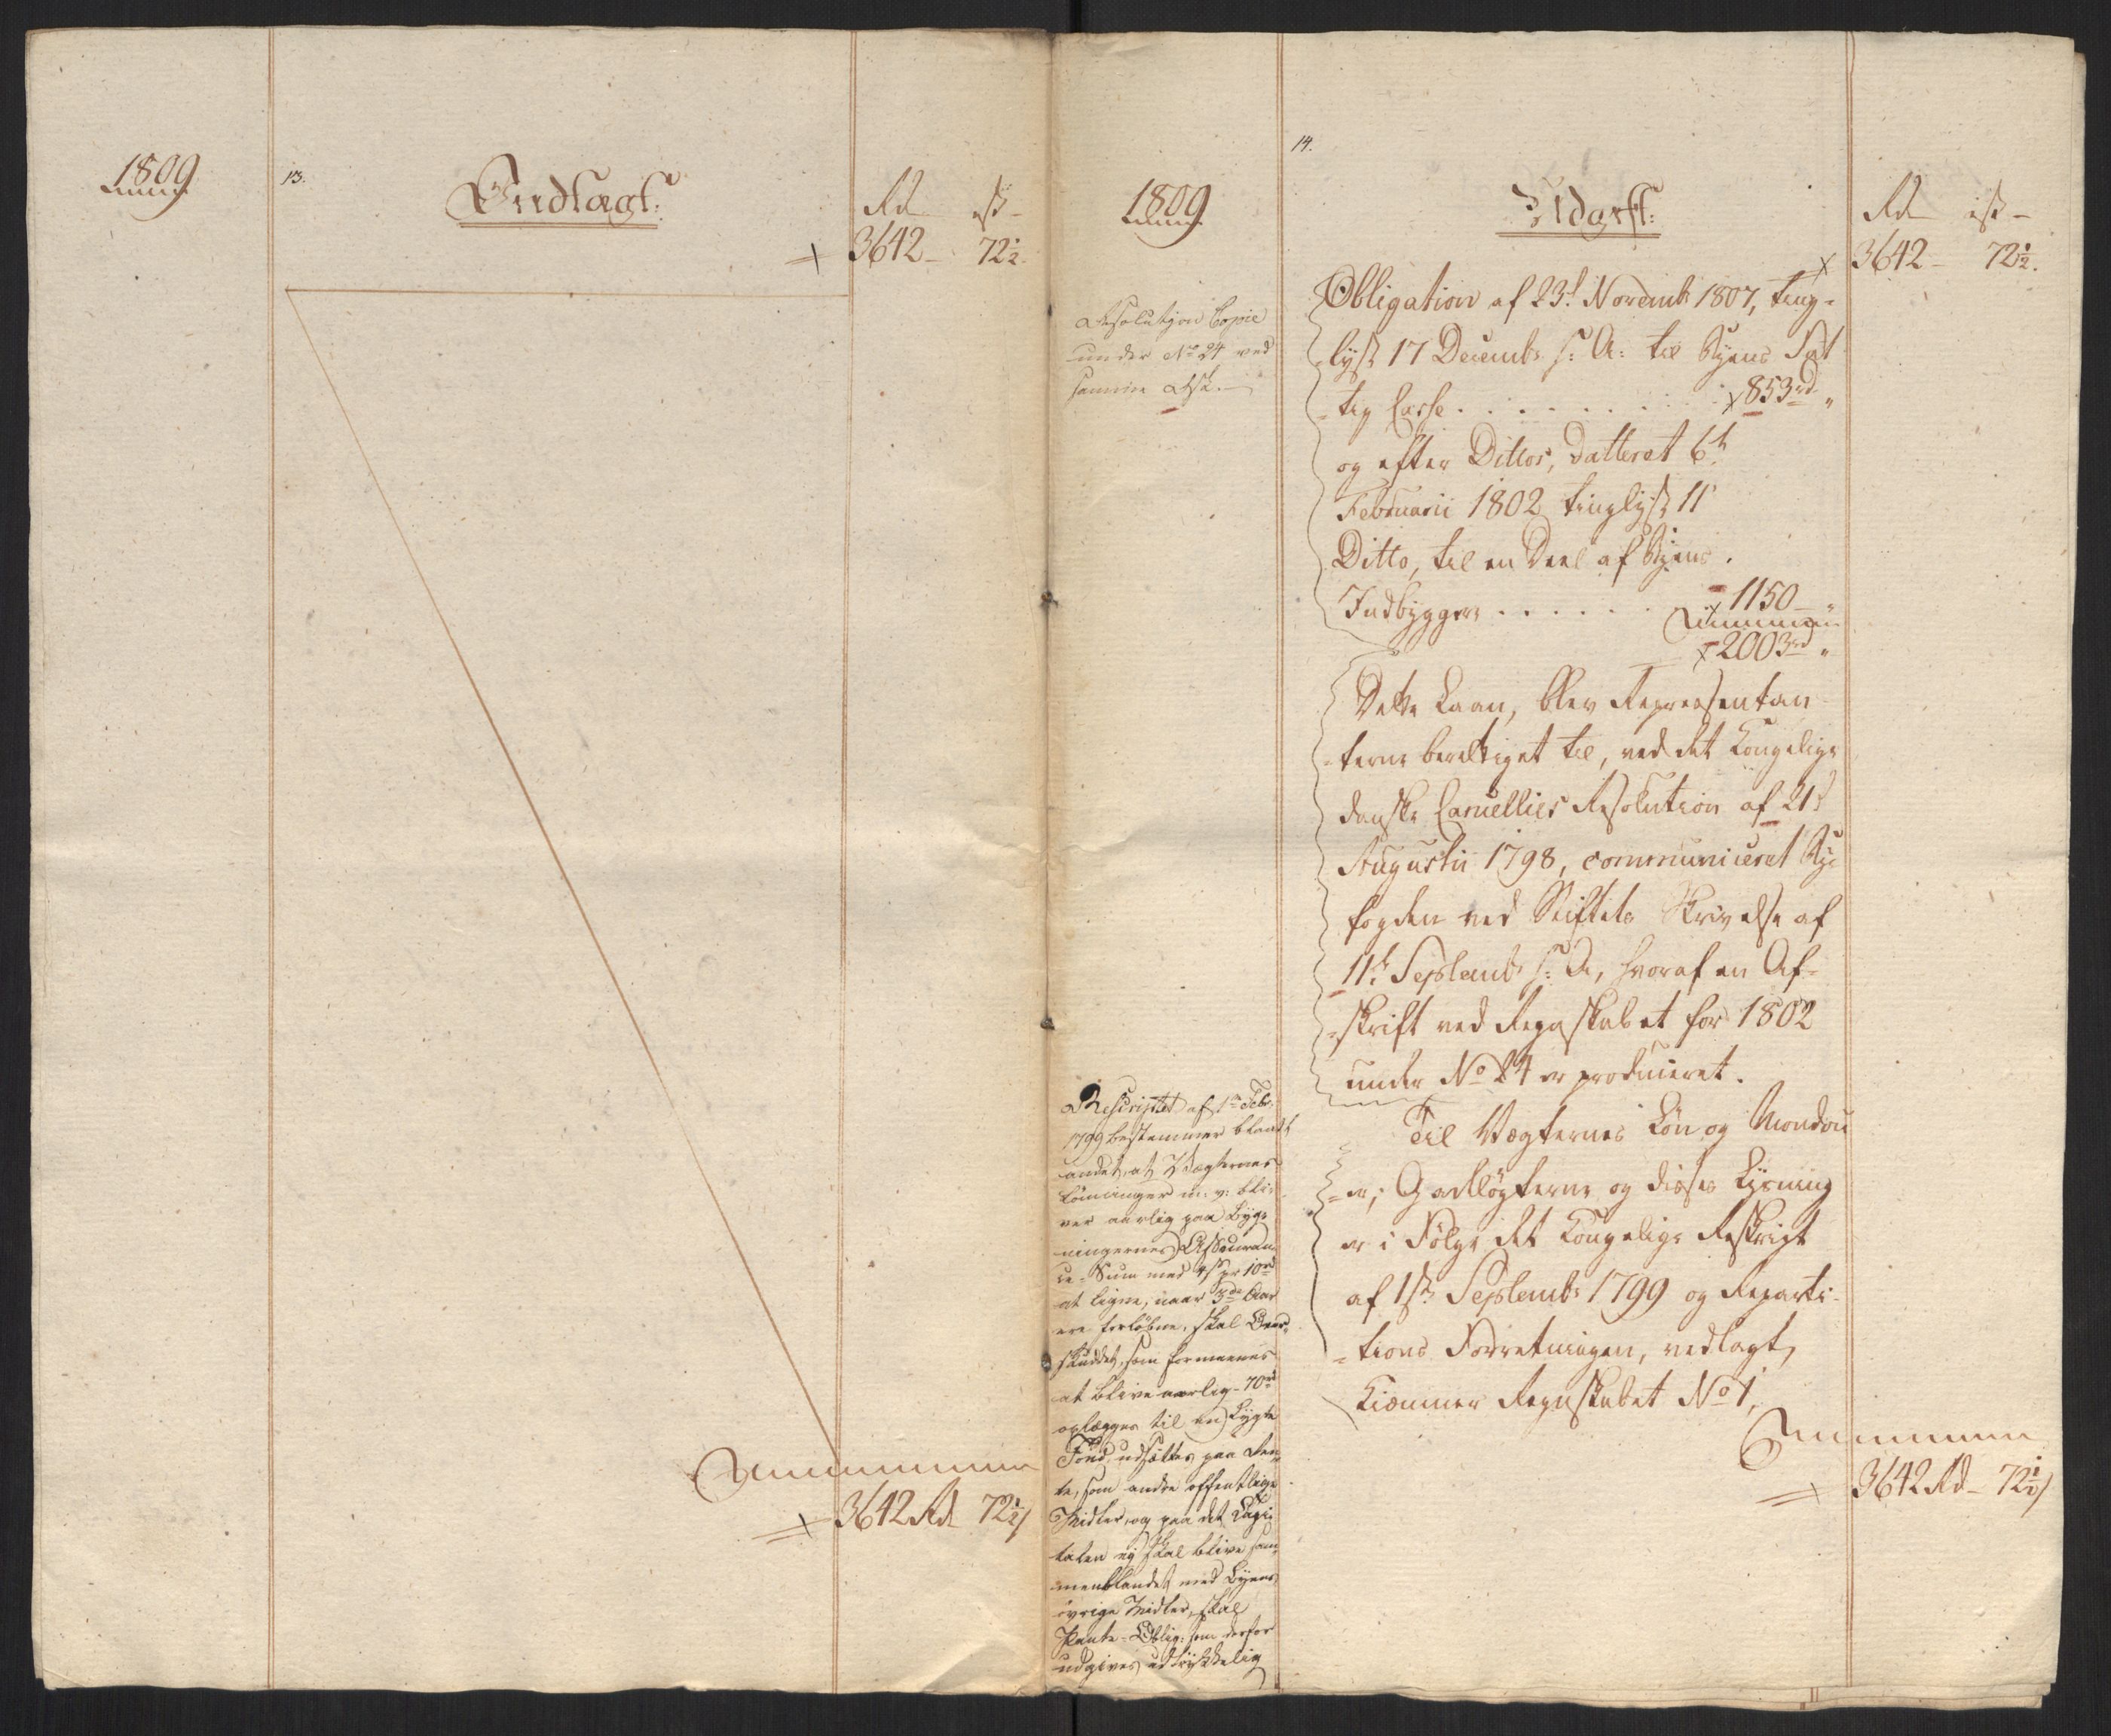 1809
13.
Indtægt:
Rd ß
3642 - 72½.
3642 Rd 72½
1809
14.
Udgift:
Rd ß
3642 - 72½.
Resolutjon Copie
under No 24 ved
samme Rsk.
Obligation af 23d Novemb: 1807, ting-
lyst 17 Decemb: s: A: til Byens Fat
tig Casse . . . . . . . 853rd "
og efter Dittos, datteret 6te
Februarii 1802 tinglyst 11
Ditto, til en Deel af Byens
Indbyggere . . . . . . 1150 - "
2003rd "
Dette Laan, blev Repræsentan
terne berettiget til, ved det Kongelige
danske Cancellies Resolution af 21d
Augustii 1798, communiceret By-
fogden ved Stiftets Skrivelse af
11te Septemb: s: A, hvoraf en Af-
skrift ved Regnskabet for 1802
under No 24 er produceret.
Til Vægternes Løn og Mondou
er; Gadeløgterne og disses Lysning
er i Følge det Kongelige Reskript
af 1ste Septemb: 1799 og Reparti-
tions Forretningen, vedlagt,
Kiæmner Regnskabet No 1,
3642 Rd - 72½
Rescriptet af 1te Feb:
1799 bestemmer blandt
andet, at Vægternes
Lønninger m: v: bli-
ver aarlig paa Byg-
ningernes Assuran
ce-Sum med 4ß pr 10rd
at ligne, naar 3de Aar
ere forløbne, skal Over-
skuddet, som formeenes
at blive aarlig - 70rd
oplægges til en Lygte
Fond, udsættes paa Ren-
te, som andre offentlige
Midler, og paa det Capi-
talen ej skal blive sam-
menblandet med Byens
øvrige Midler, skal
Pante-Oblig: som derfor
udgives udtrykkelig